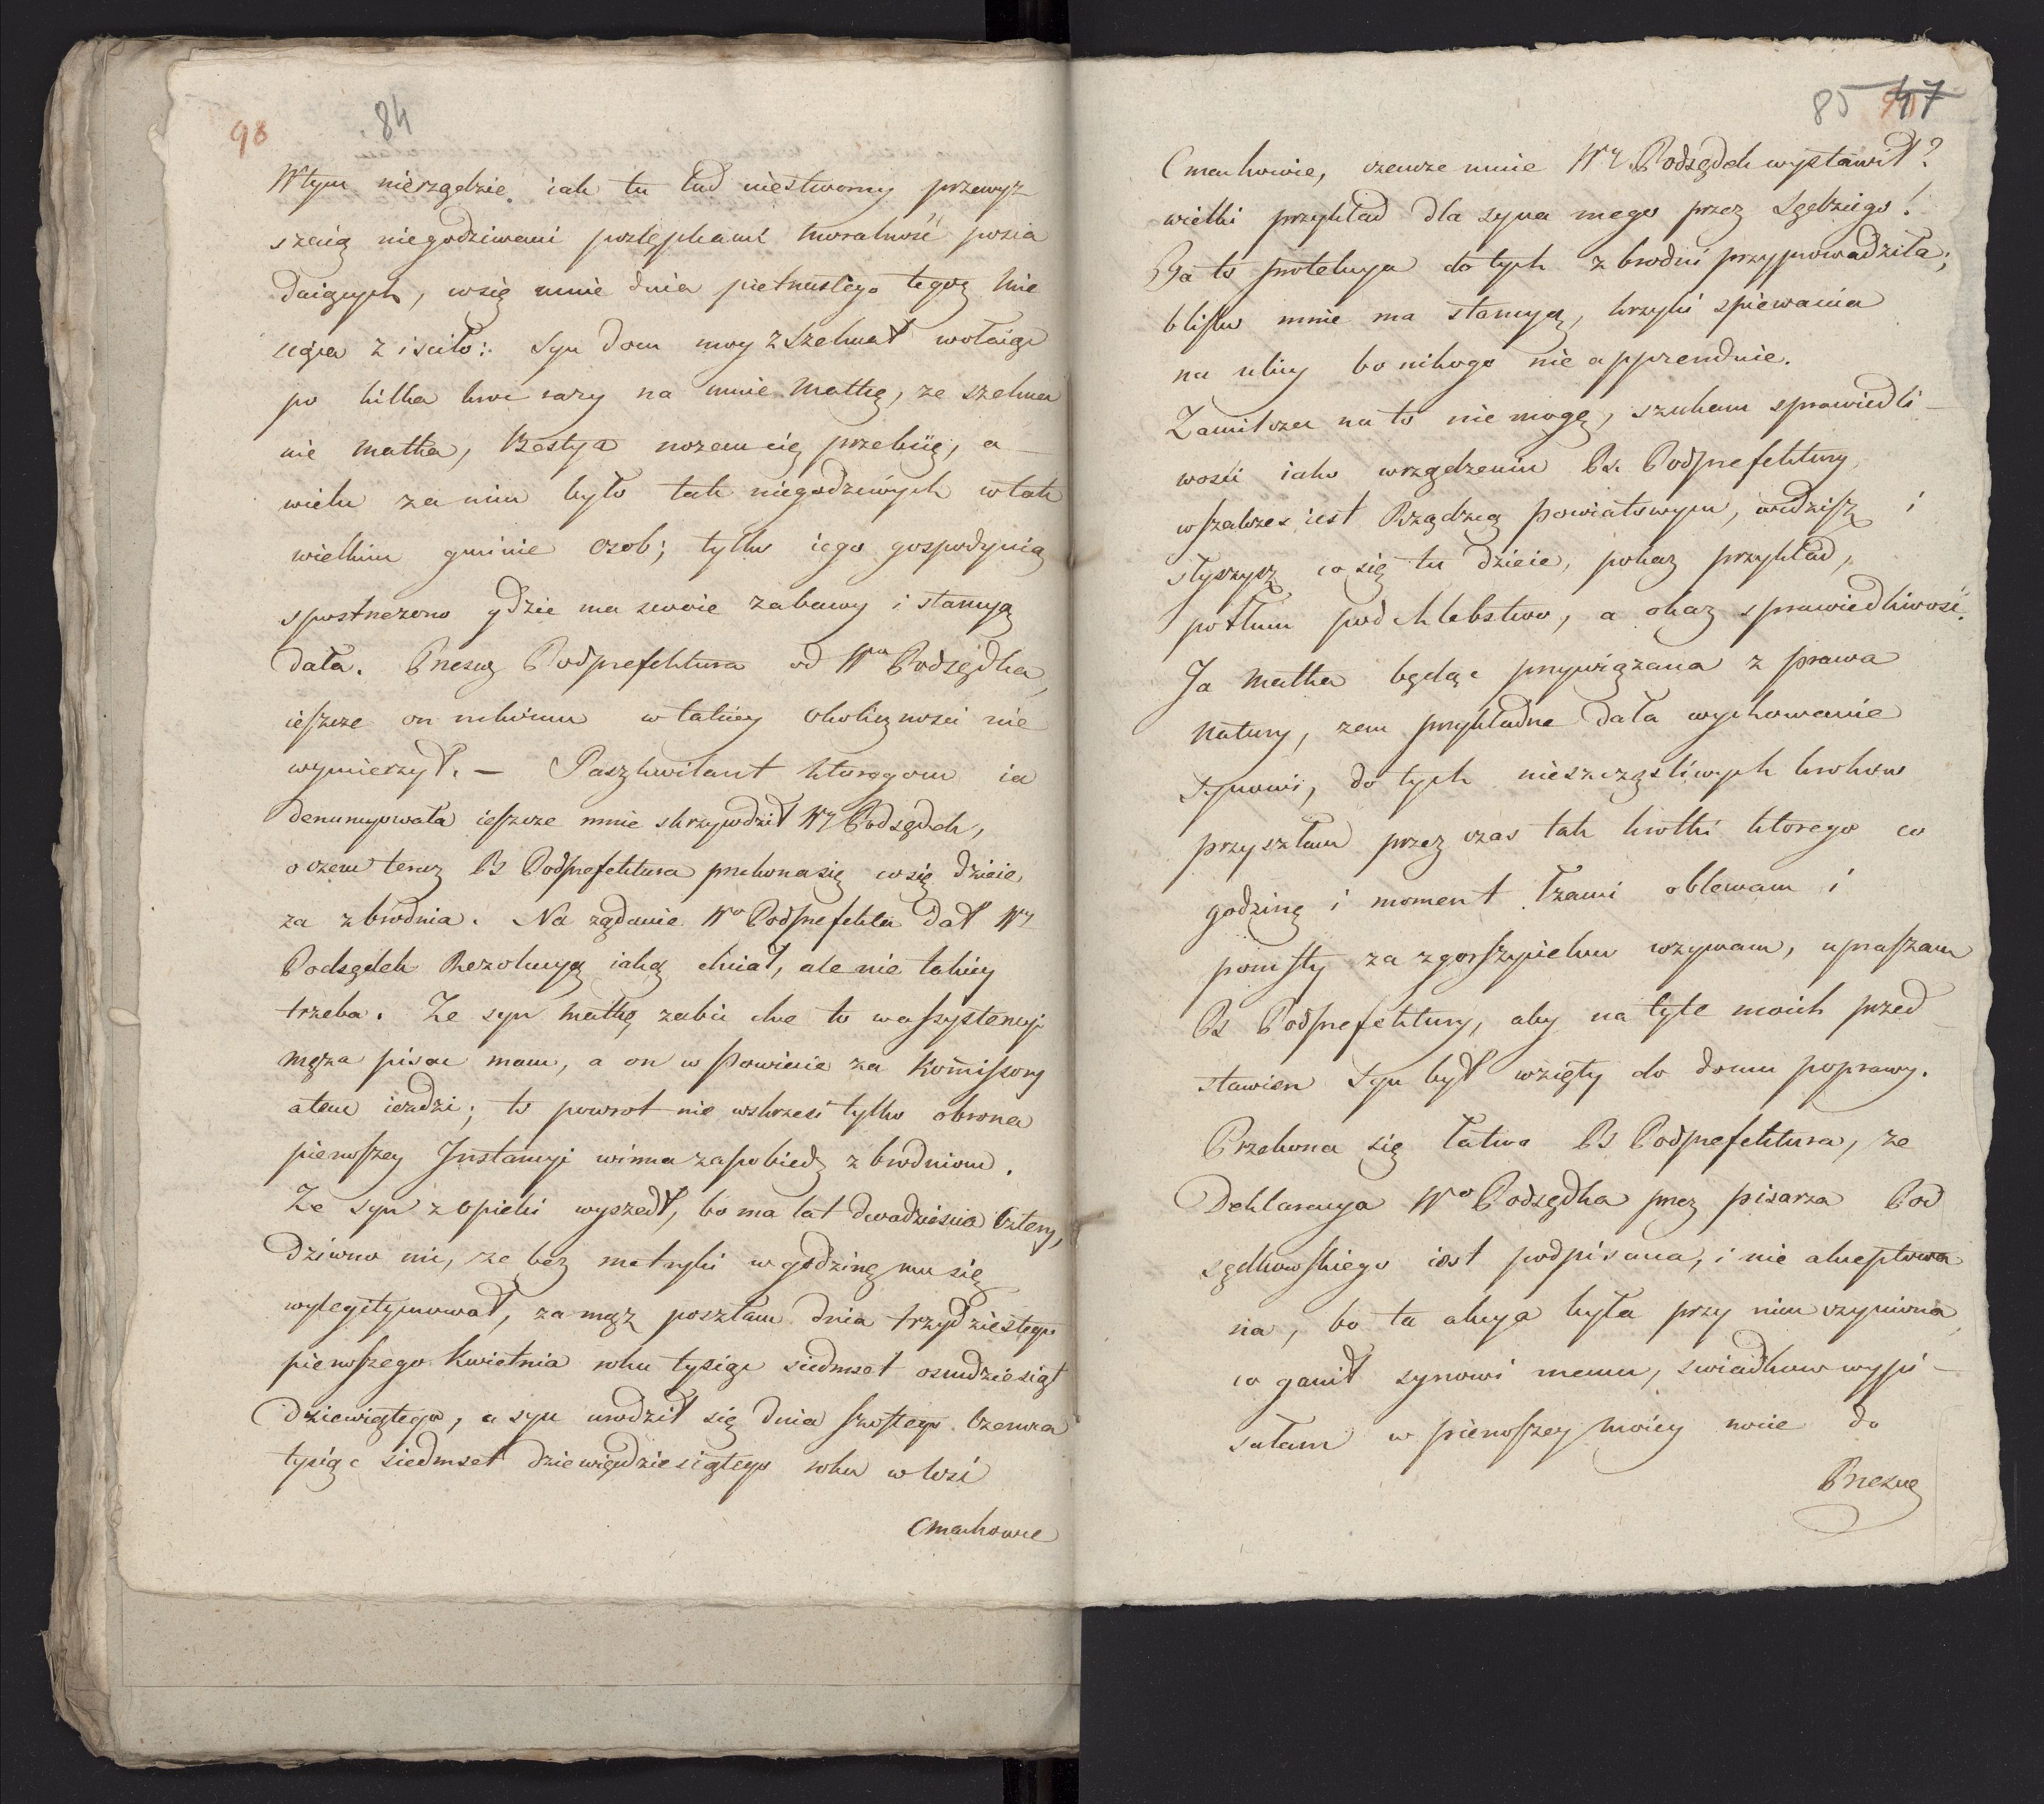 98
84
Wtym nierządzie iak tu lud niestworny przewyż
szaią niegodziwemi postępkami moralność posia
daiących, wsię mnie dnia pietnastego tegoż Mie
siąca ziściło: Syn dom moy zszelmał wołaiąc
po kilka kroć razy na mnie Matkę, że szelma
nie Matka, Bestya nożem cię przebiię, a
wielu za nim było tak niegodziwych w tak
wielkim gminie osob; tylko iego gospodynią
spostrzeżono gdzie ma swoie zabawy i stancyą
dała. Prześw Podprefektura od Wo Podsędka,
ieszcze on nikomu w takiey okoliczności nie
wymierzył. — Paszkwilant ktoregom ia
denuncyowała ieszcze mnie skrzywdził Wy Podsędek,
o czem teraz Ps Podprefektura przekona się co się dzieie
za zbrodnia. Na żądanie Wo Podprefekta dał Wy
Podsędek Rezolucyą iaką chciał, ale nie takiey
trzeba. Ze syn Matkę zabić chce to w assystencyi
męża pisać mam, a on w Powiecie za Kommissory
atem iezdzi; to powrot nie wskrzesi tylko obrona
pierwszey Instancyi winna zapobiedz zbrodniom.
Ze syn z opieki wyszedł, bo ma lat dwadzieścia cztery,
dziwno mi, że bez metryki w godzinę mu się
wylegitymował, za mąż poszłam dnia trzydziestego
pierwszego Kwietnia roku tysiąc siedmset osmdziesiąt
dziewiątego, a syn urodził się dnia szostego Czerwca
tysiąc siedmset dziewięćdziesiątego roku w Wsi
Cmachowie
85 47
Cmachowie, czemże mnie Wy Podsędek wystawił?
wielki przykład dla syna mego przez Sędziego!
Ta to protekcya do tych zbrodni przyprowadziła;
blisko mnie ma stancyą, krzyki spiewania
na ulicy bo nikogo nie apprenduie.
Zamilczeć na to nie mogę, szukam sprawiedli-
wości iako w rządzeniu Ps. Podprefektury,
wszakżeś iest Rządzcą Powiatowym, widzisz i
słyszysz co się tu dzieie, pokaz przykład,
potłum podchlebstwo, a okaz sprawiedliwość.
Ja Matka będąc przywiązana z prawa
Natury, żem przykładne dała wychowanie
Synowi, do tych nieszczęśliwych krokow
przyszłam przez czas tak krotki ktorego co
godzinę i moment łzami oblewam i
pomsty za zgorszycielow wzywam, upraszam
Ps Podprefektury, aby na tyle moich przed
stawien Syn był wzięty do domu poprawy.
Przekona się łatwo Ps Podprefektura, że
Deklaracya Wo Podsędka przez pisarza Pod
sędkowskiego iest podpisana, i nie akceptowa
na, bo ta akcya była przy nim czyniona,
co ganił synowi memu, swiadkow wypi-
sałam w pierwszey moiey nocie do
Prześw